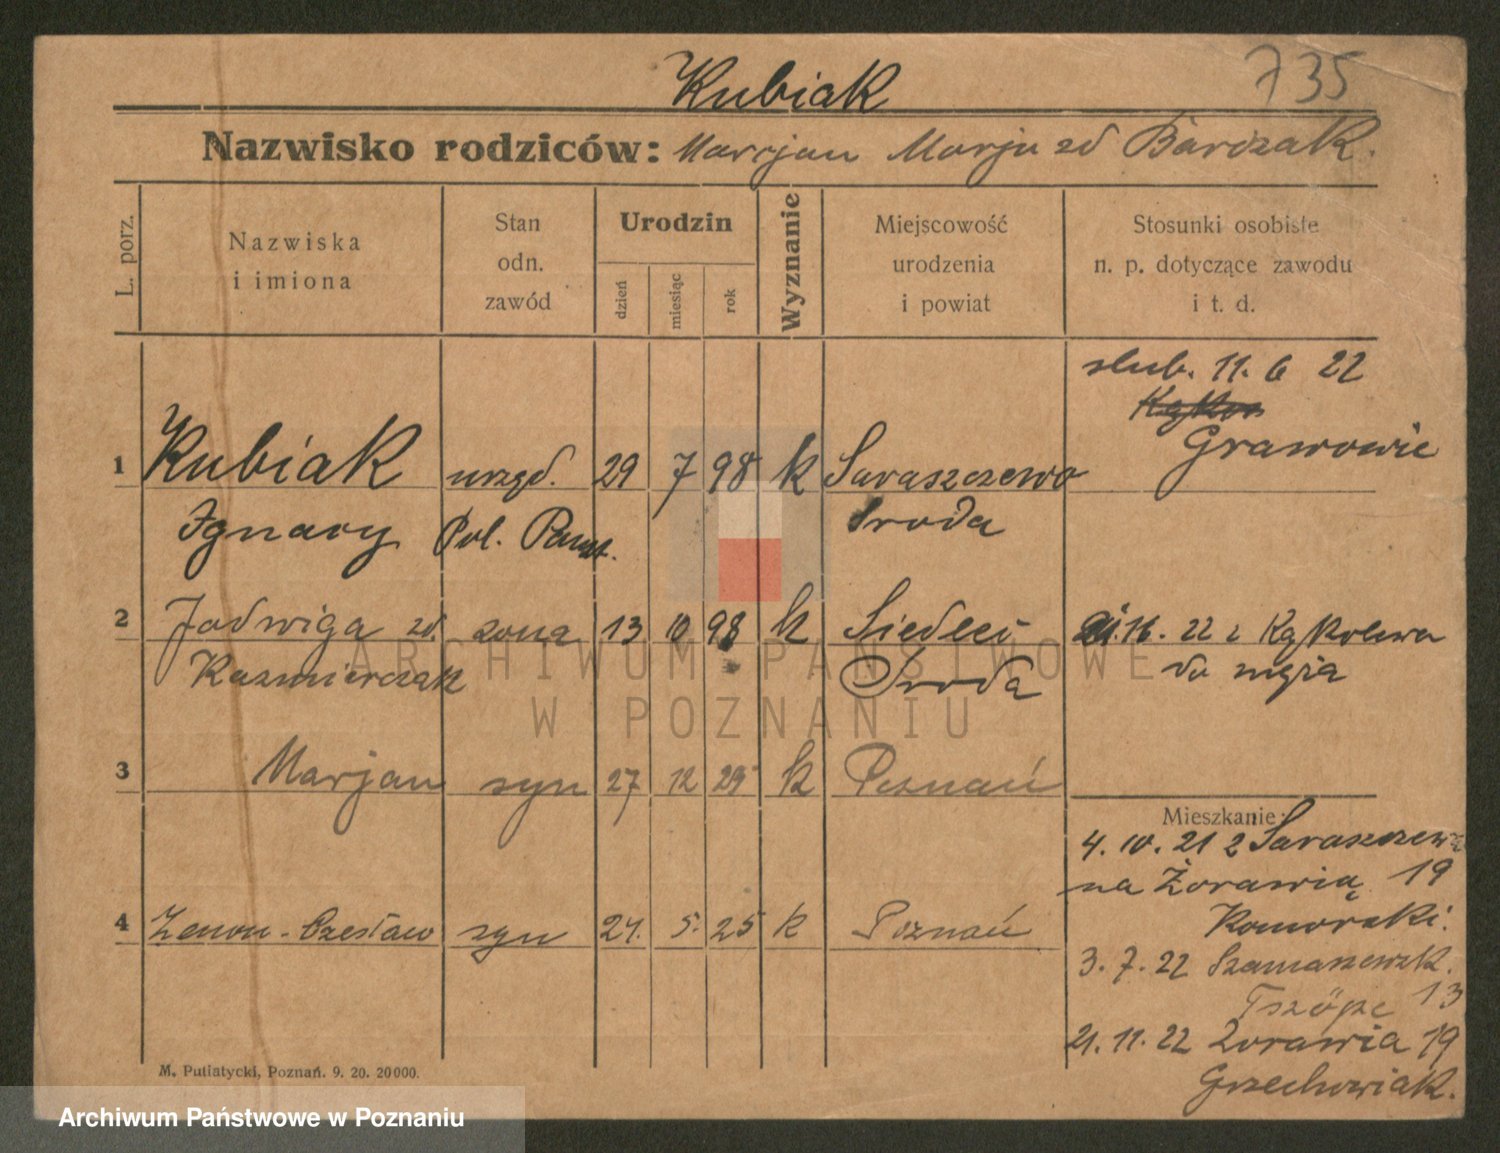 735
Kubiak
Nazwisko rodziców: Marcjan Marja zd Barczak.
L. porz.
Nazwiska
i imiona
Stan
odn.
zawód
Urodzin
dzień
miesiąc
rok
Wyznanie
Miejscowość
urodzenia
i powiat
Stosunki osobiste
n. p. dotyczące zawodu
i t. d.
slub. 11. 6 22
Grawowie
1 Kubiak urzęd. 29 7 98 k Saraszczewo
Ignacy Pol. Panst. Sroda
2 Jadwiga zd. zona 13 10 98 k Siedlec
Kazmierczak Sroda
16. 22 z Kąkolewa
do męża
3 Marjan syn 27 12 23 k Poznań
4 Zenon-Czesław syn 24. 5. 25 k Poznań
Mieszkanie:
4. 10. 21 z Saraszczewa
na Żorawią 19
Komorski.
3. 7. 22 Szamaszewsk.
13
21. 11. 22 Zorawia 19
Grzechowiak.
M. Putiatycki, Poznań. 9. 20. 20000.
ARCHIWUM PAŃSTWOWE
W POZNANIU
Archiwum Państwowe w Poznaniu